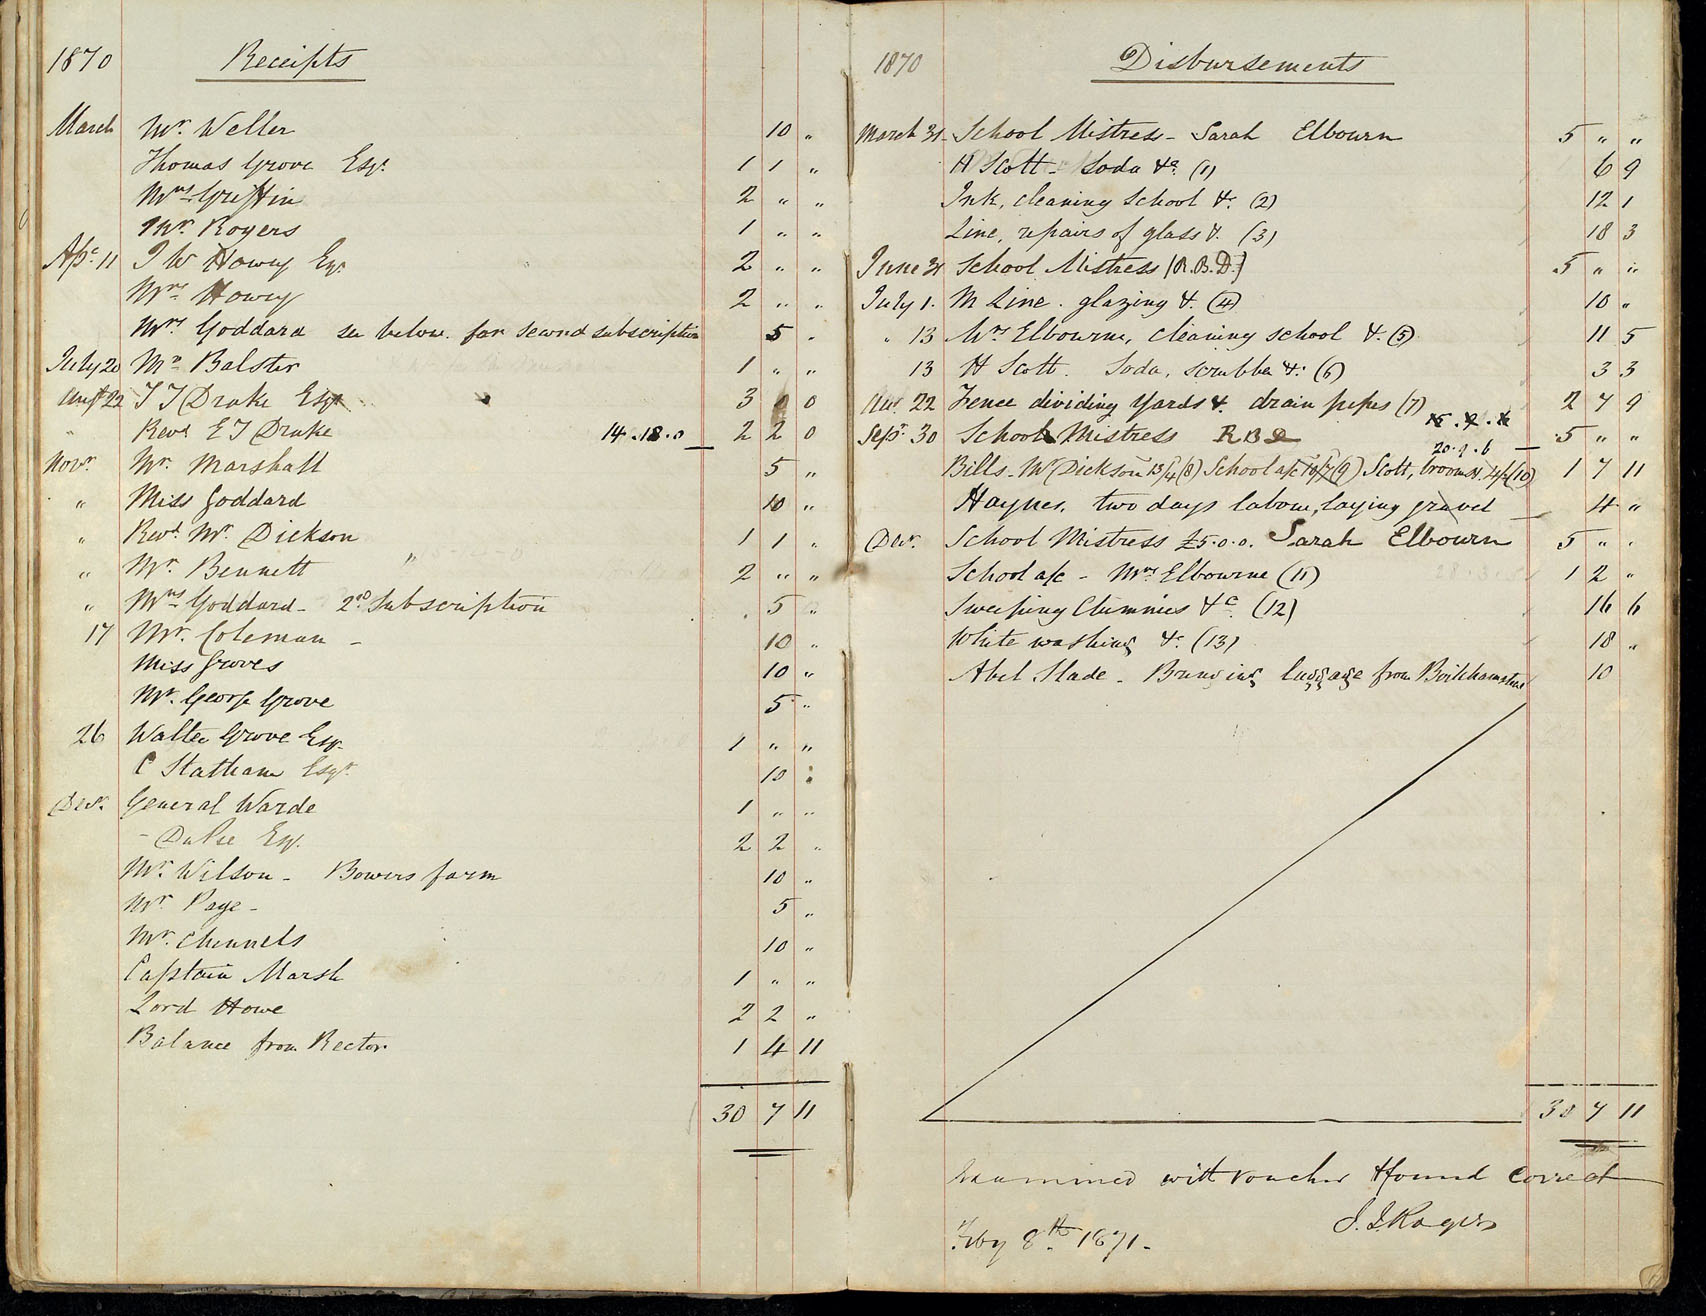 1870 Receipts
March Mr. Weller 10 "
Thomas Grove Esqr. 1 1 "
Mrs. Griffin 2 " "
Mr. Rogers 1 " "
Apl. 11 J W Howey Esqr 2 " "
Mrs. Howey 2 " "
Mrs Goddard see below for second subscription 5 "
July 20 Mr. Balster 1 " "
Augt 22 T T Drake Esqr 3 0 0
" Revd E T Drake 14.18.0 2 2 0
Novr. Mr. Marshall 5 "
" Miss Goddard 10 "
" Revd. Mr. Dickson 1 1 "
" Mr. Bennett 2 " "
" Mrs. Goddard - 2nd Subscription 5 "
17 Mr. Coleman - 10 "
Miss Groves 10 "
Mr. George Grove 5 "
26 Walter Grove Esqr. 1 " "
C Statham Esqr. 10 "
Decr. General Warde 1 " "
- DuPre Esq. 2 2 "
Mr. Wilson - Bowers farm 10 "
Mr. Page - 5 "
Mr. Chennels 10 "
Captain Marsh 1 " "
Lord Howe 2 2 "
Balance from Rector 1 4 11
30 7 11
1870 Disbursements
March 31 School Mistress - Sarah Elbourn 5 " "
H Scott - Soda &c. (1) 6 9
Ink, cleaning School &c. (2) 12 1
Line, repairs of glass &. (3) 18 3
June 31 School Mistress (R.B.D.) 5 " "
July 1. M Line. glazing &. (4) 10 "
" 13 Mrs Elbourne, cleaning school &. (5) 11 5
13 H Scott. Soda, scrubber &: (6) 3 3
Aug. 22 Fence dividing Yards &. drain pipes (7) 2 7 9
Sepr. 30 School Mistress R B D 5 " "
20.9.6
Bills - Mr Dickson 13/4 (8) School a/c 10/7 (9) Scott, brooms &. 4/- (10) 1 7 11
Haynes, two days labour, laying gravel 4 "
Decr. School Mistress £5.0.0. Sarah Elbourn 5 " "
School a/c - Mrs Elbourne (11) 1 2 "
Sweeping Chimnies &c (12) 16 6
White washing &c (13) 18 "
Abel Slade - Bringing luggage from Berkhamstead 10
30 7 11
Examined with voucher & found correct
J. J. Rogers
Feby 8th. 1871 -